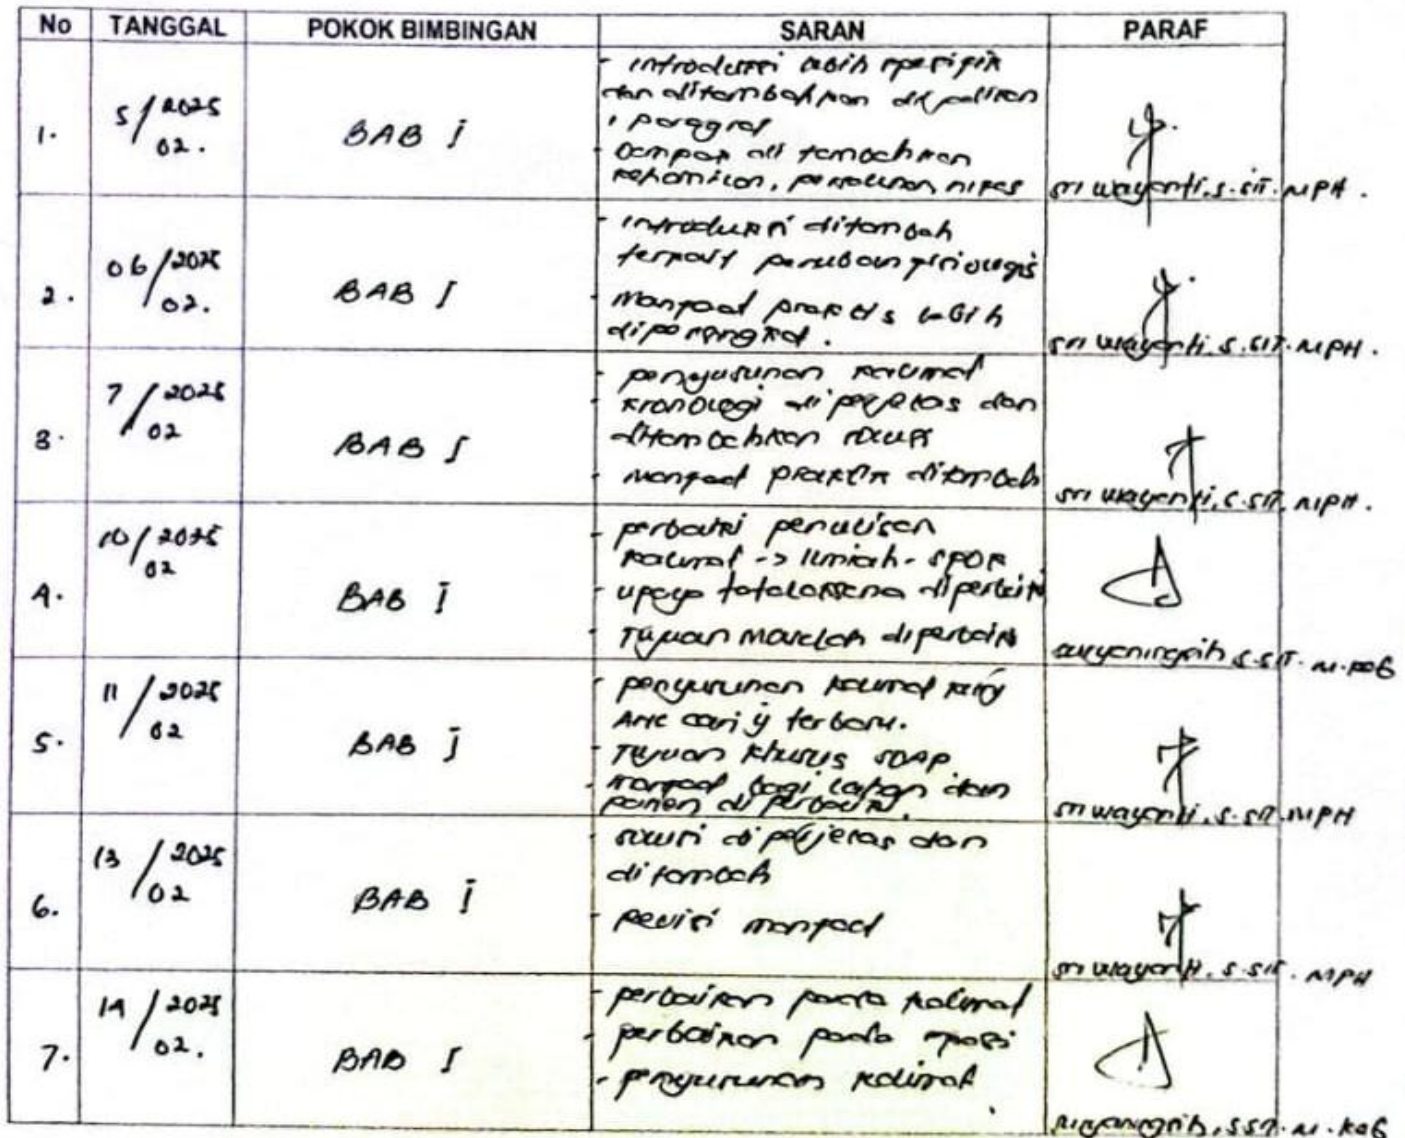 No TANGGAL POKOK BIMBINGAN SARAN PARAF
1. 5/2025 02. BAB I
- introduksi lebih spesifik
dan ditambahkan dijadikan
1 paragraf
- Dampak ditambahkan
kehamilan, persalinan, nifas
Sri Wayanti, S.SiT. MPH.
2. 06/2025 02. BAB I
- introduksi ditambah
terkait perubahan fisiologis
- Manfaat praktis lebih
dipersingkat.
Sri Wayanti, S.SiT. MPH.
3. 7/2025 02 BAB I
- penyusunan kalimat
- kronologi diperjelas dan
ditambahkan solusi
- Manfaat praktis ditambah
Sri Wayanti, S.SiT. MPH.
4. 10/2025 02 BAB I
- perbaiki penulisan
kalimat -> Ilmiah - SPOK
- upaya tatalaksana diperbaiki
- Tujuan Masalah diperbaiki
S.SiT. M.Keb
5. 11/2025 02 BAB I
- penyusunan kalimat
ANC cari yg terbaru.
- Tujuan khusus SOAP
- Manfaat bagi lahan dan
diperbaiki.
Sri Wayanti, S.SiT. MPH
6. 13/2025 02 BAB I
- solusi diperjelas dan
ditambah
- Revisi manfaat
Sri Wayanti, S.SiT. MPH
7. 14/2025 02. BAB I
- perbaikan pada kalimat
- perbaikan pada
- penyusunan kalimat
SST. M.Keb